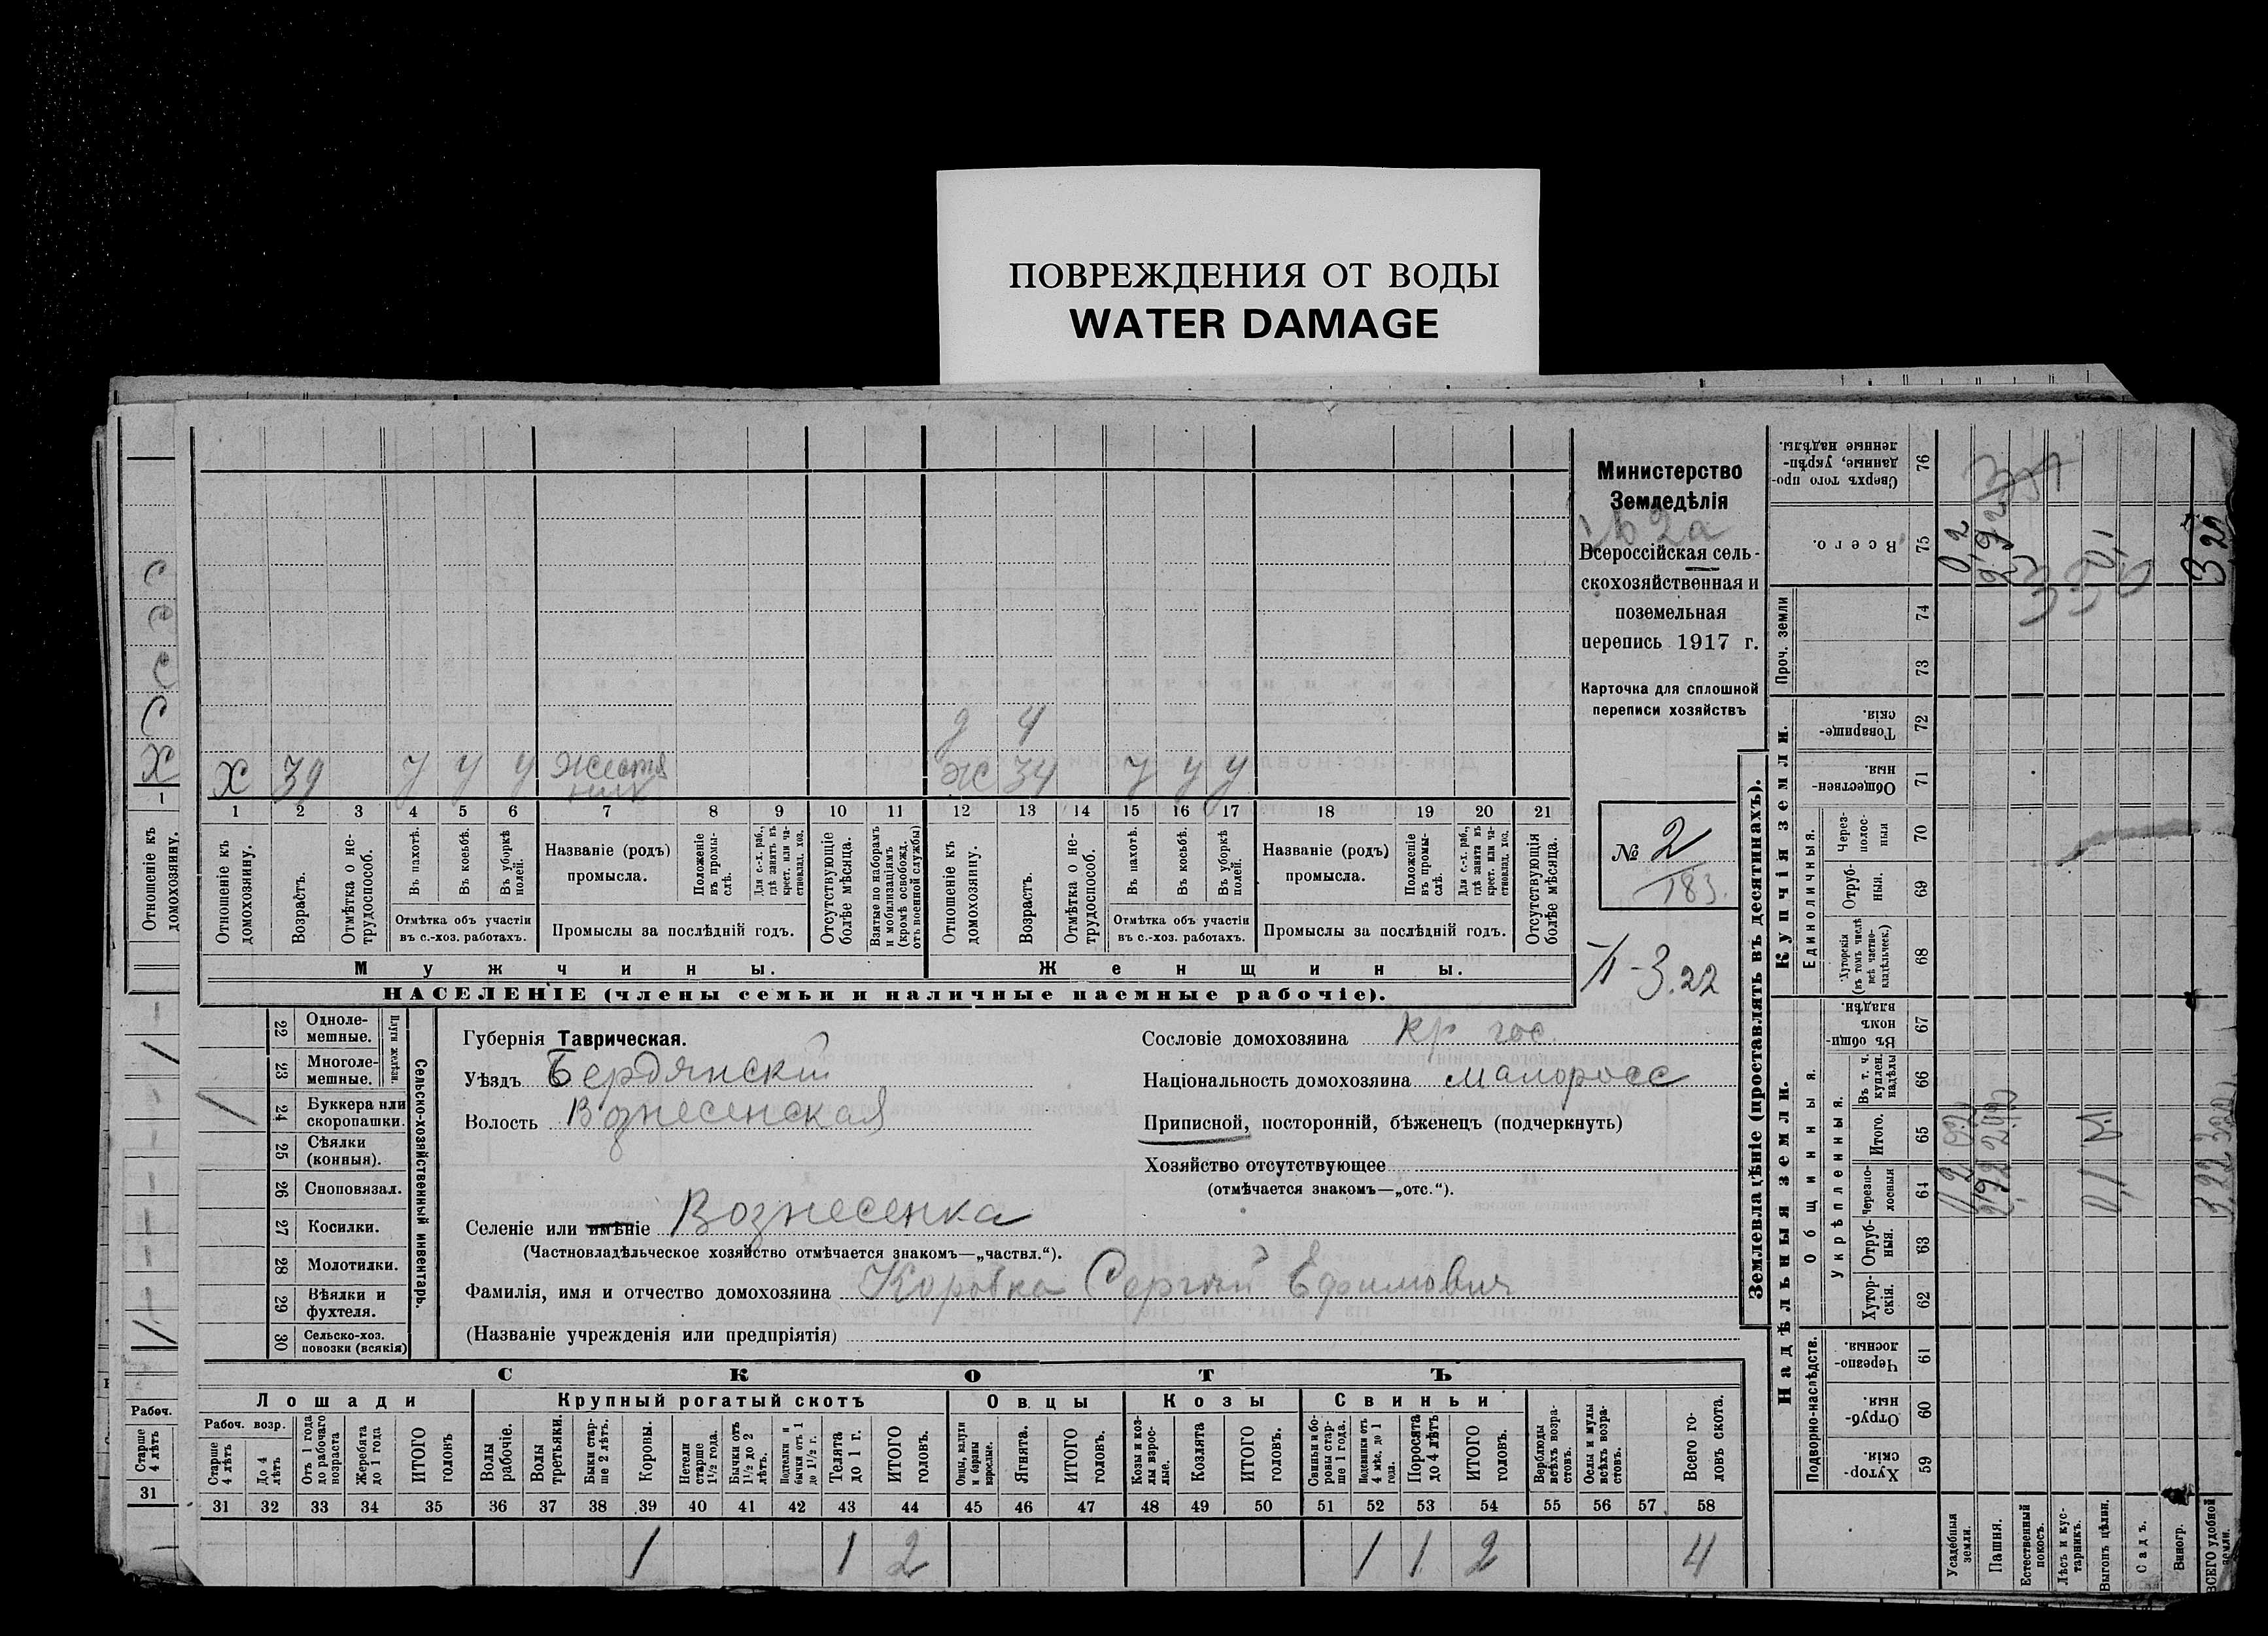 ПОВРЕЖДЕНИЯ ОТ ВОДЫ
WATER DAMAGE
Министерство
Земледѣлія
№ 2а
Всероссійская сель-
скохозяйственная и
поземельная
перепись 1917 г.
Карточка для сплошной
переписи хозяйствъ
№ 2
183.
3.22
С
С
С
С
Х
1
Отношеніе къ домохозяину.
д 4
Х 39 У У У Жестя
ник
Ж 34 У У У
1 2 3 4 5 6 7 8 9 10 11 12 13 14 15 16 17 18 19 20 21
Отношеніе къ домохозяину.
Возрастъ.
Отмѣтка о не-трудоспособ.
Въ пахотѣ.
Въ косьбѣ.
Въ уборкѣ полей.
Отмѣтка объ участіи
въ с.-хоз. работахъ.
Названіе (родъ)
промысла.
Положеніе въ промы-слѣ.
Для с.-х. раб., гдѣ занятъ въ крест. или ча-стновлад. хоз.
Промыслы за послѣдній годъ.
Отсутствующіе болѣе мѣсяца.
Взятые по наборамъ и мобилизаціямъ (кромѣ освобожд. отъ военной службы)
Отношеніе къ домохозяину.
Возрастъ.
Отмѣтка о не-трудоспособ.
Въ пахотѣ.
Въ косьбѣ.
Въ уборкѣ полей.
Отмѣтка объ участіи
въ с.-хоз. работахъ.
Названіе (родъ)
промысла.
Положеніе въ промы-слѣ.
Для с.-х. раб., гдѣ занята въ крест. или ча-стновлад. хоз.
Промыслы за послѣдній годъ.
Отсутствующія болѣе мѣсяца.
Мужчины.
Женщины.
НАСЕЛЕНІЕ (члены семьи и наличные наемные рабочіе).
22 Одноле-мешные.
23 Многоле-мешные.
Плуги желѣзн.
24 Буккера или скоропашки.
25 Сѣялки (конныя).
26 Сноповязал.
27 Косилки.
28 Молотилки.
29 Вѣялки и фухтеля.
30 Сельско-хоз. повозки (всякія)
Сельско-хозяйственный инвентарь.
Губернія Таврическая.
Уѣздъ Бердянскій
Волость Вознесенская
Селеніе или имѣніе Вознесенка
(Частновладѣльческое хозяйство отмѣчается знакомъ—„частвл.“).
Фамилія, имя и отчество домохозяина Коровка Сергѣй Ефимович
(Названіе учрежденія или предпріятія)
Сословіе домохозяина кр гос.
Національность домохозяина малоросс
Приписной, посторонній, бѣженецъ (подчеркнуть)
Хозяйство отсутствующее
(отмѣчается знакомъ—„отс.“).
СКОТЪ
Лошади
Крупный рогатый скотъ
Овцы
Козы
Свиньи
Рабоч.
Старше 4 лѣтъ
31
Рабоч. возр.
Старше 4 лѣтъ
До 4 лѣтъ
Отъ 1 года до рабочаго возраста
Жеребята до 1 года
ИТОГО головъ
Волы рабочіе.
Волы третьяки.
Быки стар-ше 2 лѣтъ.
Коровы.
Нетели старше 1½ года.
Бычки отъ 1½ до 2 лѣтъ.
Подтелки и бычки отъ 1 до 1½ г.
Телята до 1 г.
ИТОГО головъ.
Овцы, валухи и бараны взрослые.
Ягнята.
ИТОГО головъ.
Козы и коз-лы взрос-лые.
Козлята
ИТОГО головъ.
Свиньи и бо-ровы стар-ше 1 года.
Подсвинки отъ 4 мѣс. до 1 года.
Поросята до 4 лѣтъ
ИТОГО головъ.
Верблюды всѣхъ возра-стовъ.
Ослы и мулы всѣхъ возра-стовъ.
Всего го-ловъ скота.
31 32 33 34 35 36 37 38 39 40 41 42 43 44 45 46 47 48 49 50 51 52 53 54 55 56 57 58
1 1 2 1 1 2 4
Землевладѣніе (проставлять въ десятинахъ).
Надѣльныя земли.
Купчія земли.
Проч. земли
Подворно-наслѣдств.
Общинныя.
Укрѣпленныя.
Единоличныя.
Хутор-скія. 59
Отруб-ныя. 60
Черезпо-лосныя. 61
Хутор-скія. 62
Отруб-ныя. 63
Черезпо-лосныя 64
Итого. 65
Въ т. ч. куплен. надѣлы 66
Въ общи-номъ владѣн. 67
Хуторскія (въ томъ числѣ всѣ частно-владѣльческ.) 68
Отруб-ныя. 69
Через-полос-ныя 70
Обществен-ныя. 71
Товарище-скія. 72
73
74
Всего. 75
Сверхъ того про-данные, укрѣп-ленные надѣлы. 76
Усадебныя земли.
Пашня.
Естественный покосъ.
Лѣсъ и кус-тарникъ.
Выгонъ цѣлин.
Садъ.
Виногр.
ВСЕГО удобной земли.
0,2
2,92
0,1
3,22